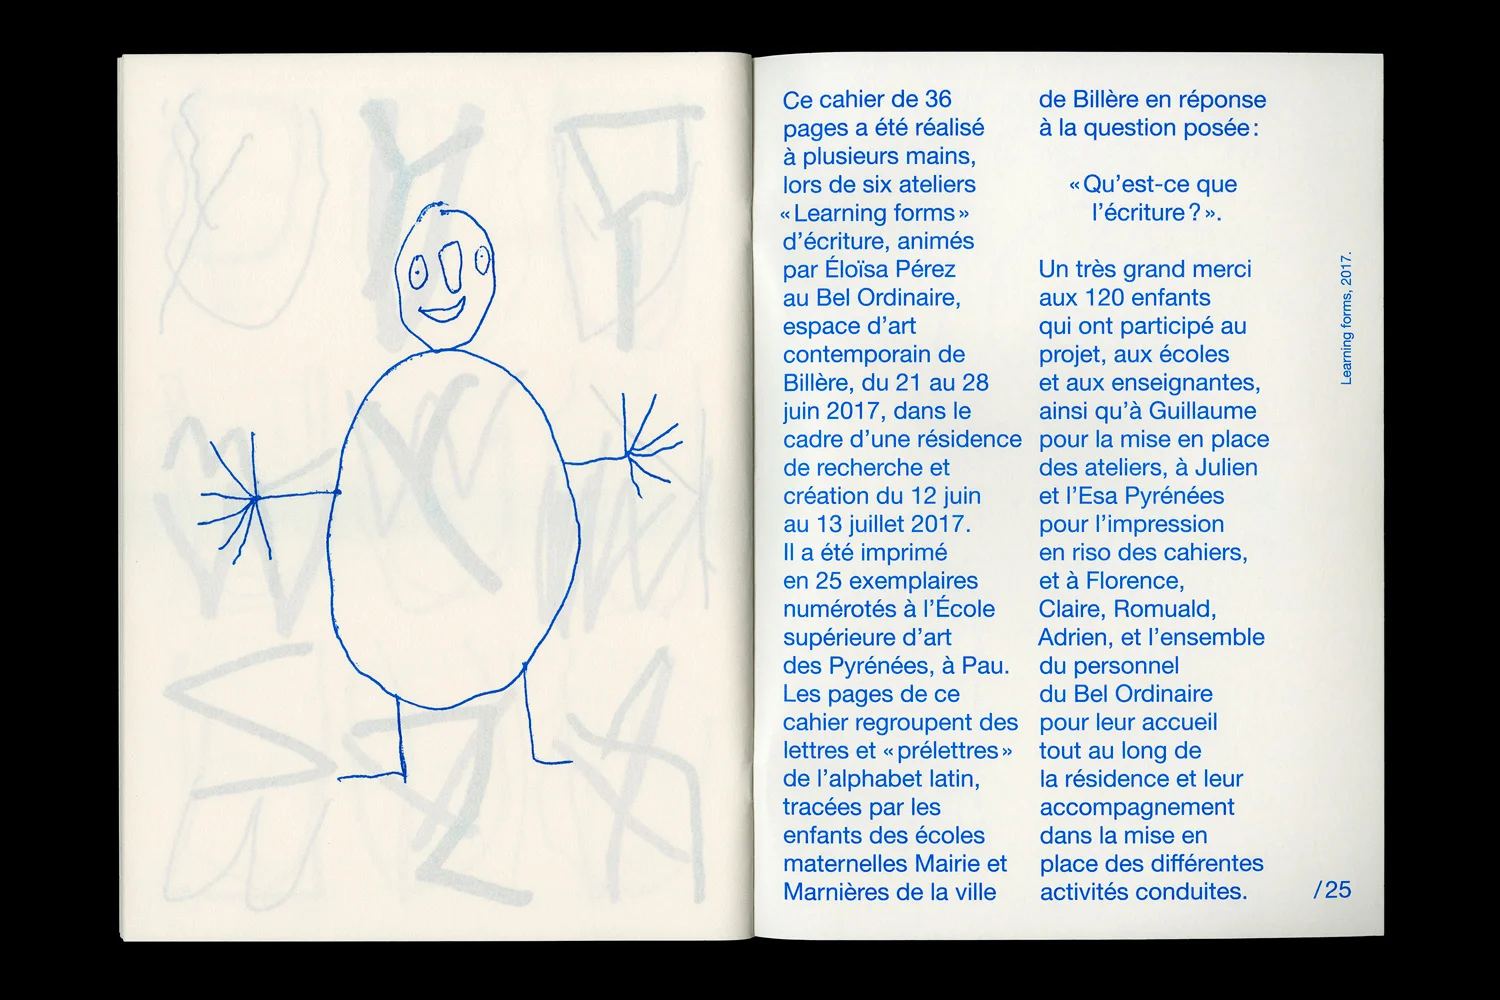 Ce cahier de 36
pages a été réalisé
à plusieurs mains,
lors de six ateliers
« Learning forms »
d’écriture, animés
par Éloïsa Pérez
au Bel Ordinaire,
espace d’art
contemporain de
Billère, du 21 au 28
juin 2017, dans le
cadre d’une résidence
de recherche et
création du 12 juin
au 13 juillet 2017.
Il a été imprimé
en 25 exemplaires
numérotés à l’École
supérieure d’art
des Pyrénées, à Pau.
Les pages de ce
cahier regroupent des
lettres et « prélettres »
de l’alphabet latin,
tracées par les
enfants des écoles
maternelles Mairie et
Marnières de la ville
de Billère en réponse
à la question posée :
« Qu’est-ce que
l’écriture ? ».
Un très grand merci
aux 120 enfants
qui ont participé au
projet, aux écoles
et aux enseignantes,
ainsi qu’à Guillaume
pour la mise en place
des ateliers, à Julien
et l’Esa Pyrénées
pour l’impression
en riso des cahiers,
et à Florence,
Claire, Romuald,
Adrien, et l’ensemble
du personnel
du Bel Ordinaire
pour leur accueil
tout au long de
la résidence et leur
accompagnement
dans la mise en
place des différentes
activités conduites.
Learning forms, 2017.
/ 25